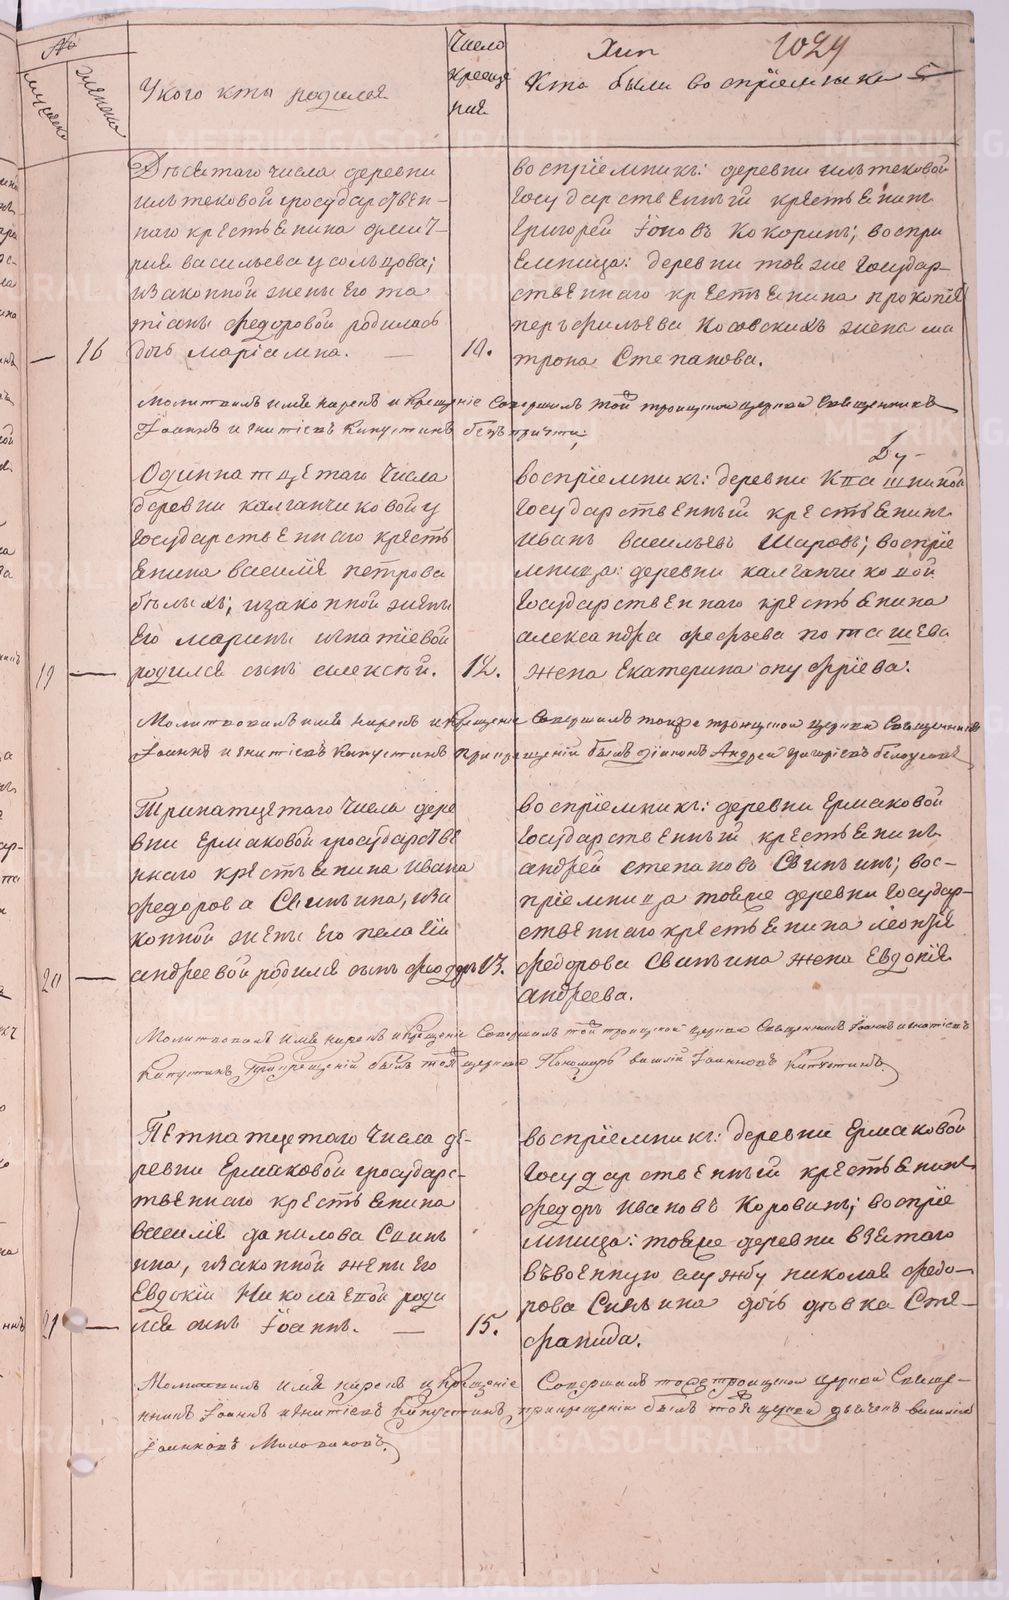 №
мужеска
женска
У кого кты родился
Число
креще
ния
Хип
1029
Кто были воспрiемники
5
Десятаго числа деревни
Ильтековой государствен-
наго крестьянина Дмит-
рия Васильева Усольцова;
и законной жены его та
тiаны федоровой родилась
— 16 дочь Марiамна. — 10.
воспрiемникъ: деревни ильтековой
государственный крестьянинъ
Григорей Iоновъ Кокоринъ; воспри
емница: деревни тояже государ-
ственнаго крестьянина прокопiя
перьфильева Косовскихъ жена ма
трона Степанова.
Молитвилъ имя нарекъ и крещенiе совершилъ той троицкой церкви священникъ
Iоаннъ игнатiевъ Капустинъ безъ причти;
Одиннатцетаго числа
деревни калганчиковой у
государственнаго кресть
янина василiя петрова
белыхъ; и законной жены
его марины игнатiевой
19 — родился сынъ алексей. 12.
Ду-
воспрiемникъ: деревни Кпашниной
государственный крестьянинъ
Иванъ васильевъ Шаровъ; воспрiе
мница: деревни калганчиковой
государственнаго крестьянина
александра
жена Екатерина онуфрiева.
Молитвовалъ имя нарекъ и крещенiе совершилъ тояже троицкой церкви священникъ
Iоаннъ игнатiевъ Капустинъ при крещенiи былъ дiаконъ Андрей григорiевъ
Тринатцетаго числа дере
вни Ермаковой государстве
ннаго крестьянина Ивана
федорова Свиньина, и за
конной жены его пелагiи
20 — андреевой родился сынъ феодоръ 13.
воспрiемникъ: деревни Ермаковой
государственный крестьянинъ
андрей степановъ Свиньинъ; вос-
прiемница тояже деревни государ-
ственнаго крестьянина леонтiя
федорова Свиньина жена Евдокiя
андреева.
Молитвовалъ имя нарекъ и крещенiе совершилъ той троицкой церкви священникъ Iоаннъ игнатiевъ
Капустинъ при крещенiи былъ тоя церкви пономарь василiй Iоанновъ Капустинъ.
Пятнатцетаго числа де-
ревни Ермаковой государс-
твеннаго крестьянина
василiя данилова Свинь
ина, и законной жены его
Евдокiи Николаевой роди
21 — лся сынъ Iоаннъ. — 15.
воспрiемникъ: деревни Ермаковой
государственный крестьянинъ
федоръ ивановъ Коровинъ; воспрiе
мница: тояже деревни взятаго
въ военную службу николая федо-
рова Свиньина дочь девка Сте-
фанида.
Молитвилъ имя нарекъ и крещенiе совершилъ тояже троицкой церкви свяще-
нникъ Iоаннъ игнатiевъ Капустинъ, при крещенiи былъ тоя церкви дьячекъ василiй
Iоанновъ
METRIKI.GASO-URAL.RU